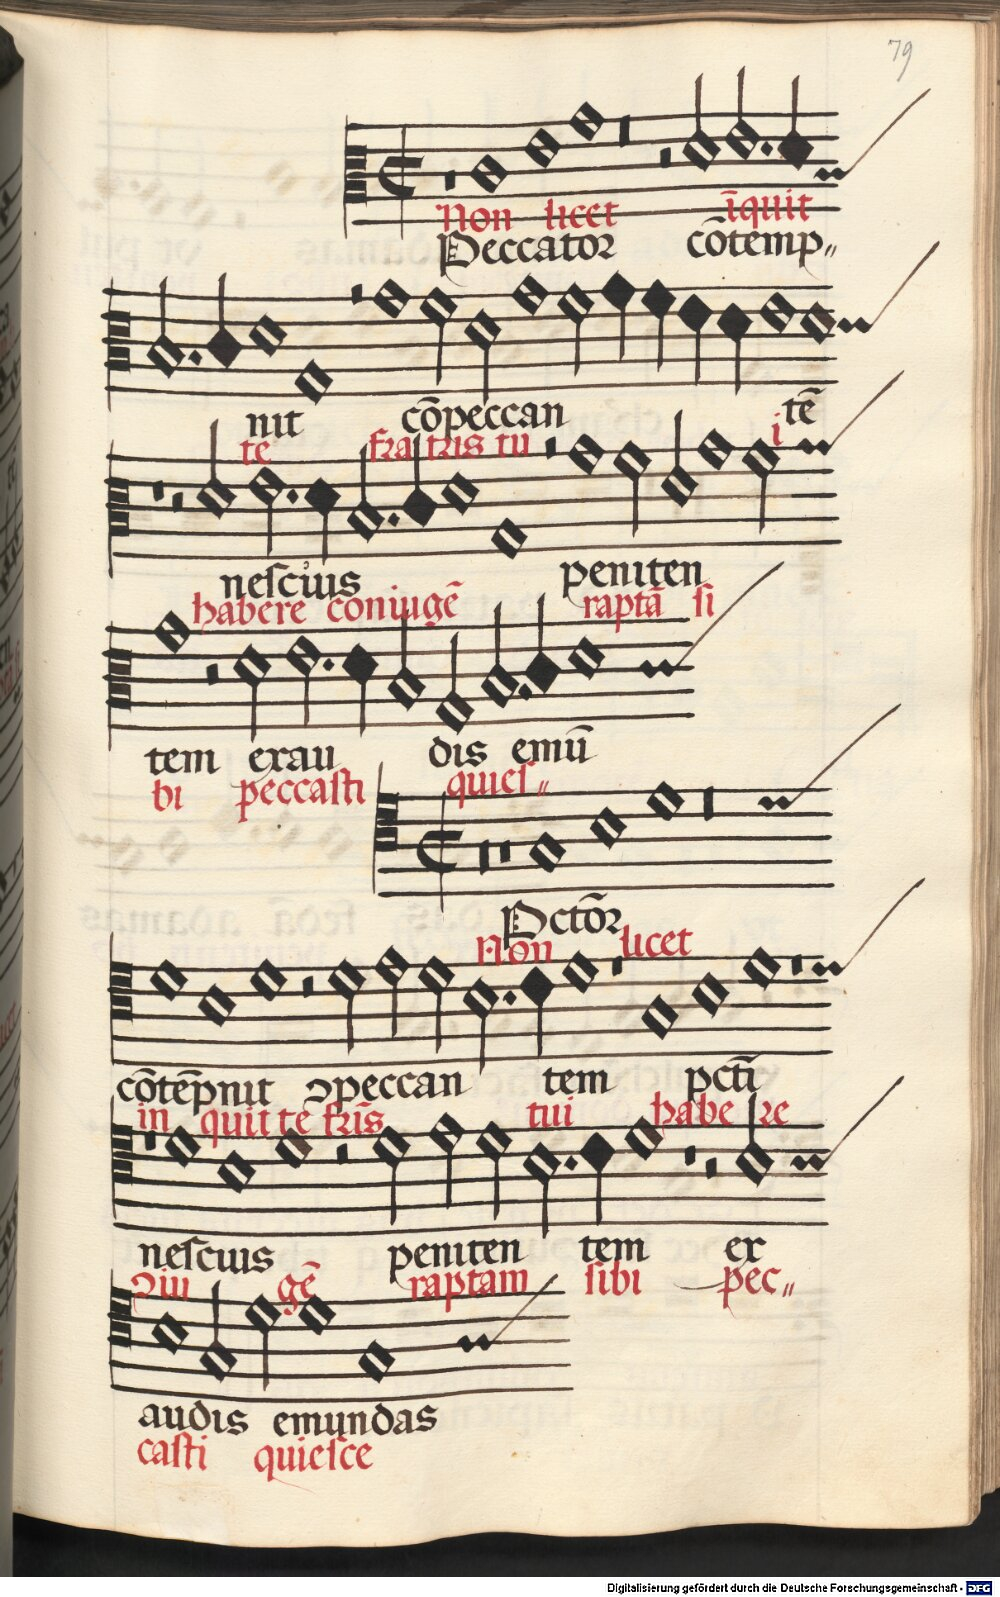 79
Non licet īquit
Peccator cōtemp„
nit cōpeccan tē
te fratris tu i
nescius peniten
habere coniugē raptā si
tem exau dis emū
bi peccasti quies„
Pctōr
Non licet
cōtēpnit ɔpeccan tem pcti
in quit te fris tui habe re
nescius peniten tem ex
ɔiu gē raptam sibi pec„
audis emundas
casti quiesce
Digitalisierung gefördert durch die Deutsche Forschungsgemeinschaft - DFG